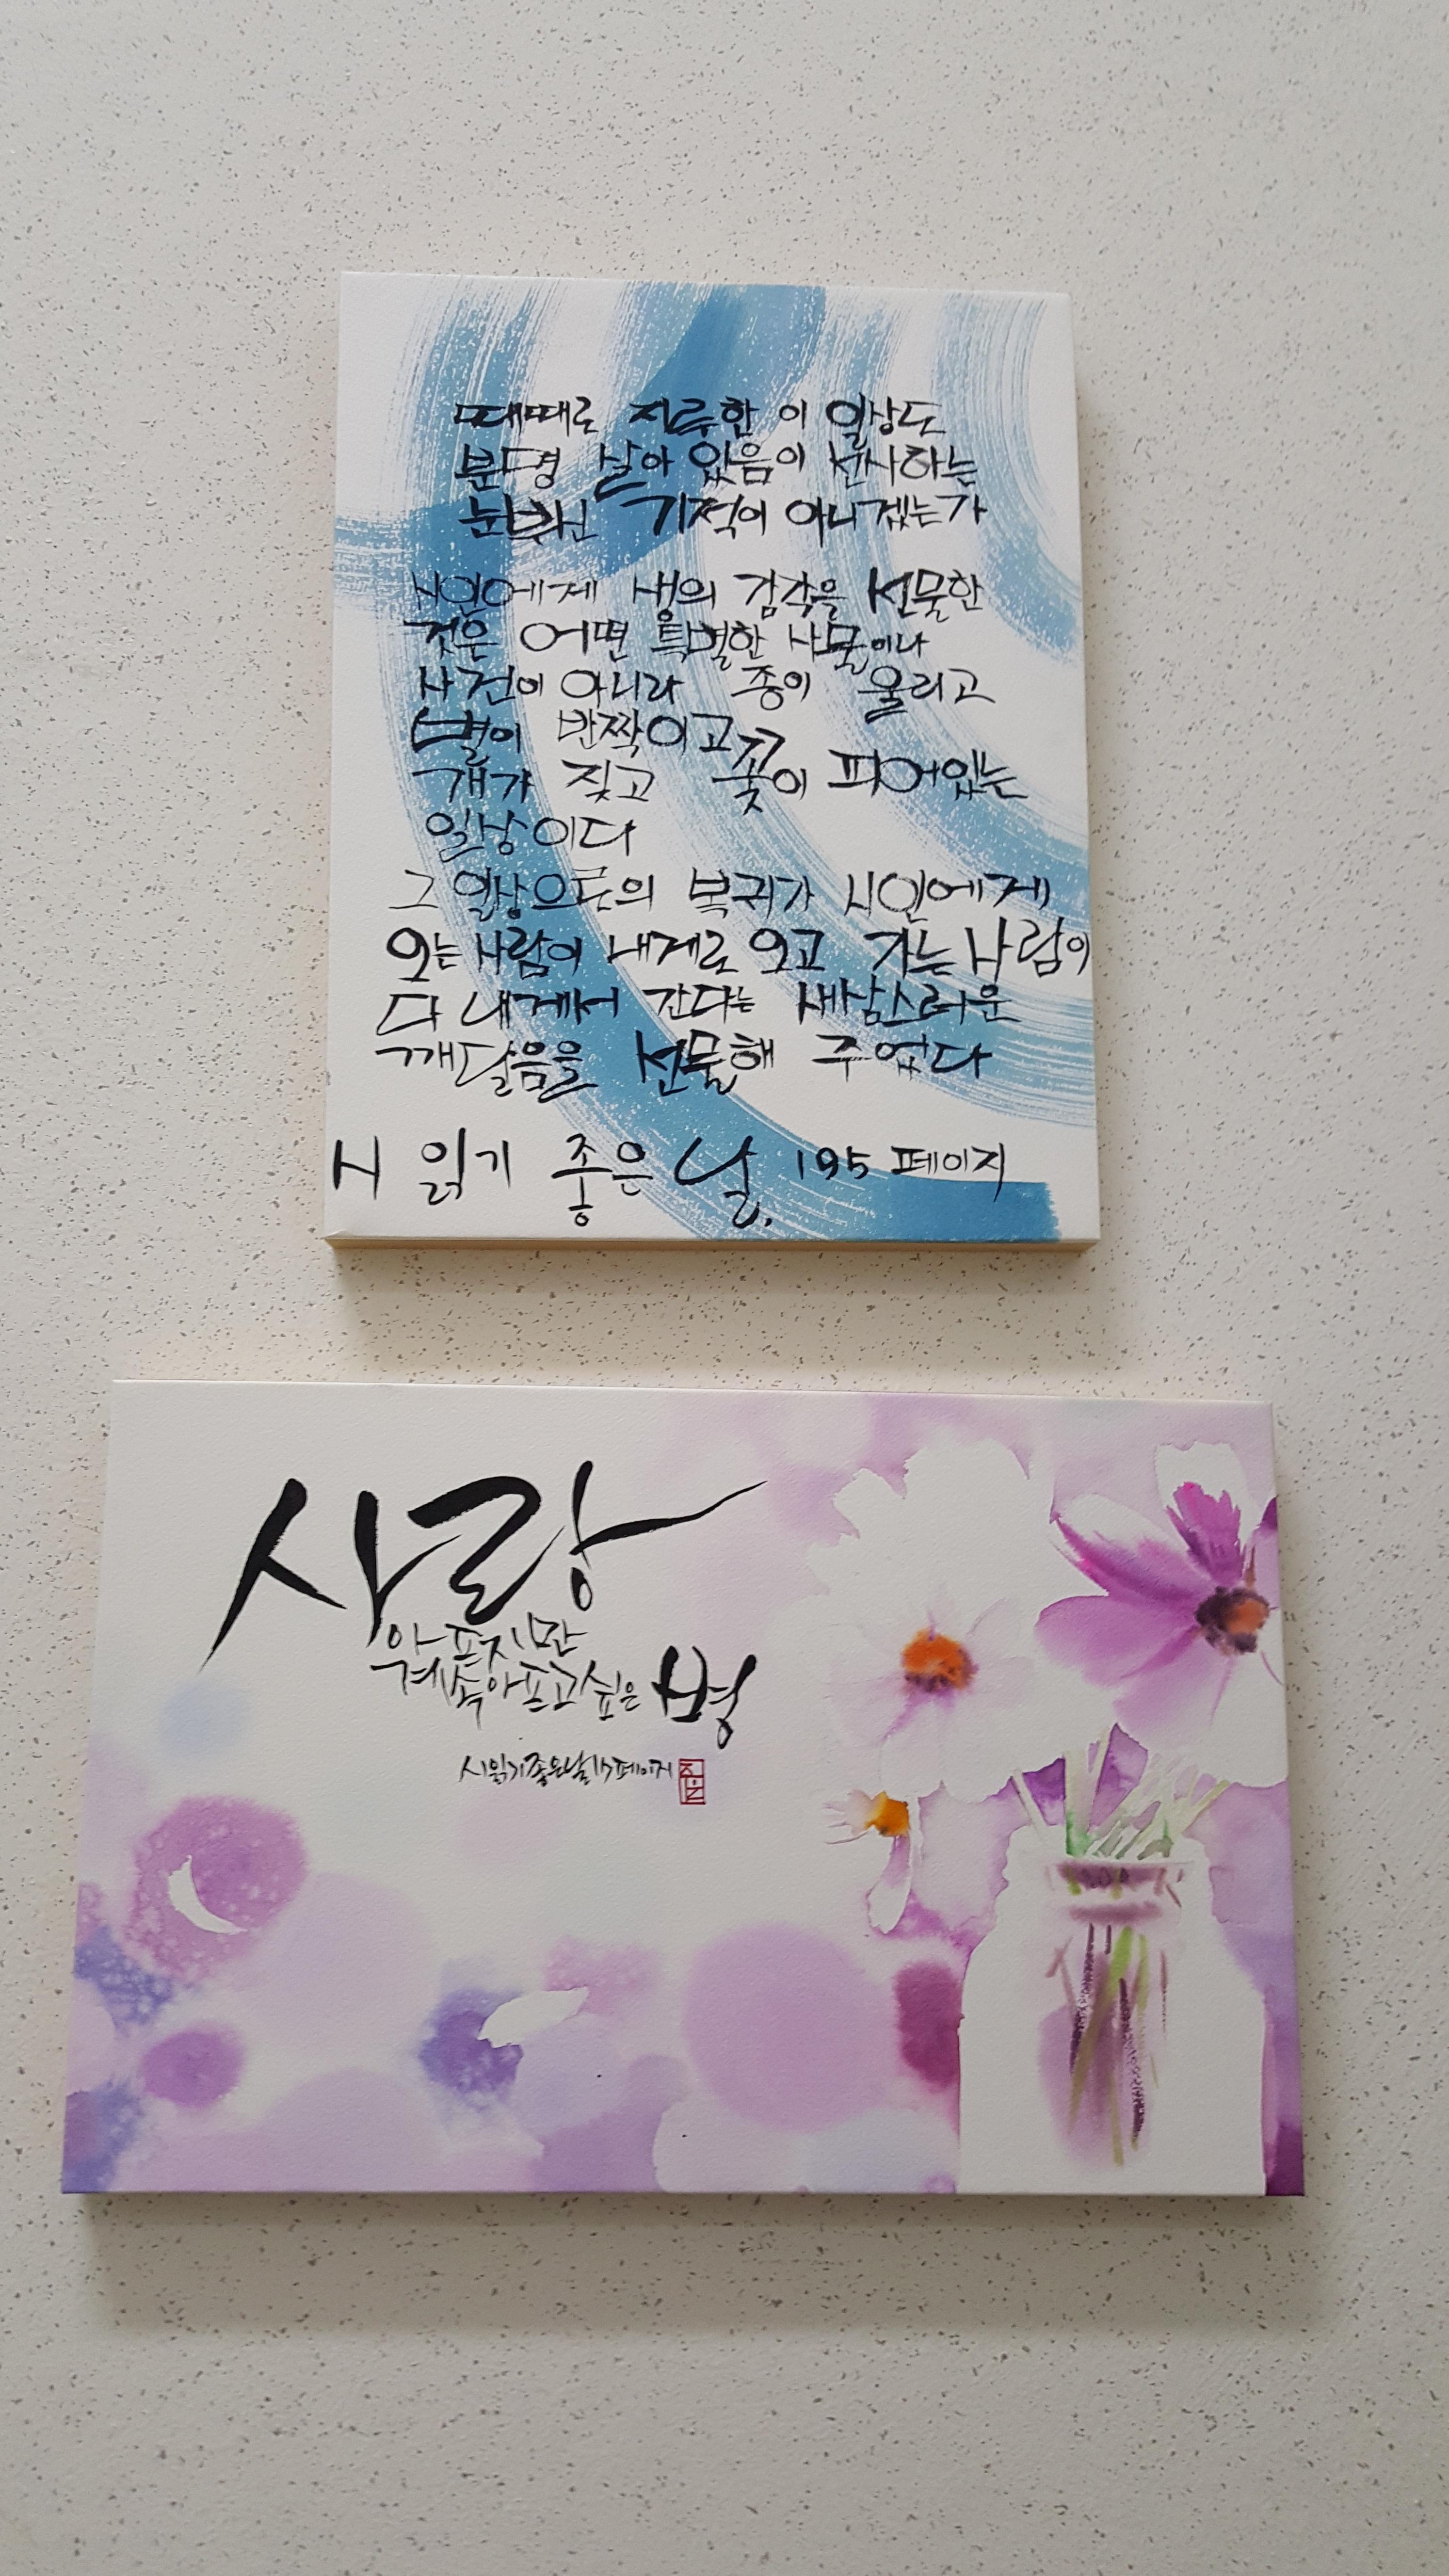 때때로 지루한 이 일상도
분명 살아 있음이 선사하는
눈부신 기적이 아니겠는가
시인에게 생의 감각을 선물한
것은 어떤 특별한 사물이나
사건이 아니라 종이 울리고
별이 반짝이고
개가 짖고 꽃이 피어있는
일상이다
그 일상으로의 복귀가 시인에게
오는 사람이 내게로 오고 가는 사람이
다 내게서 간다는 새삼스러운
깨달음을 선물해 주었다
시 읽기 좋은 날. 195 페이지
사랑
아프지만
계속 아프고 싶은 병
시 읽기 좋은 날 17페이지